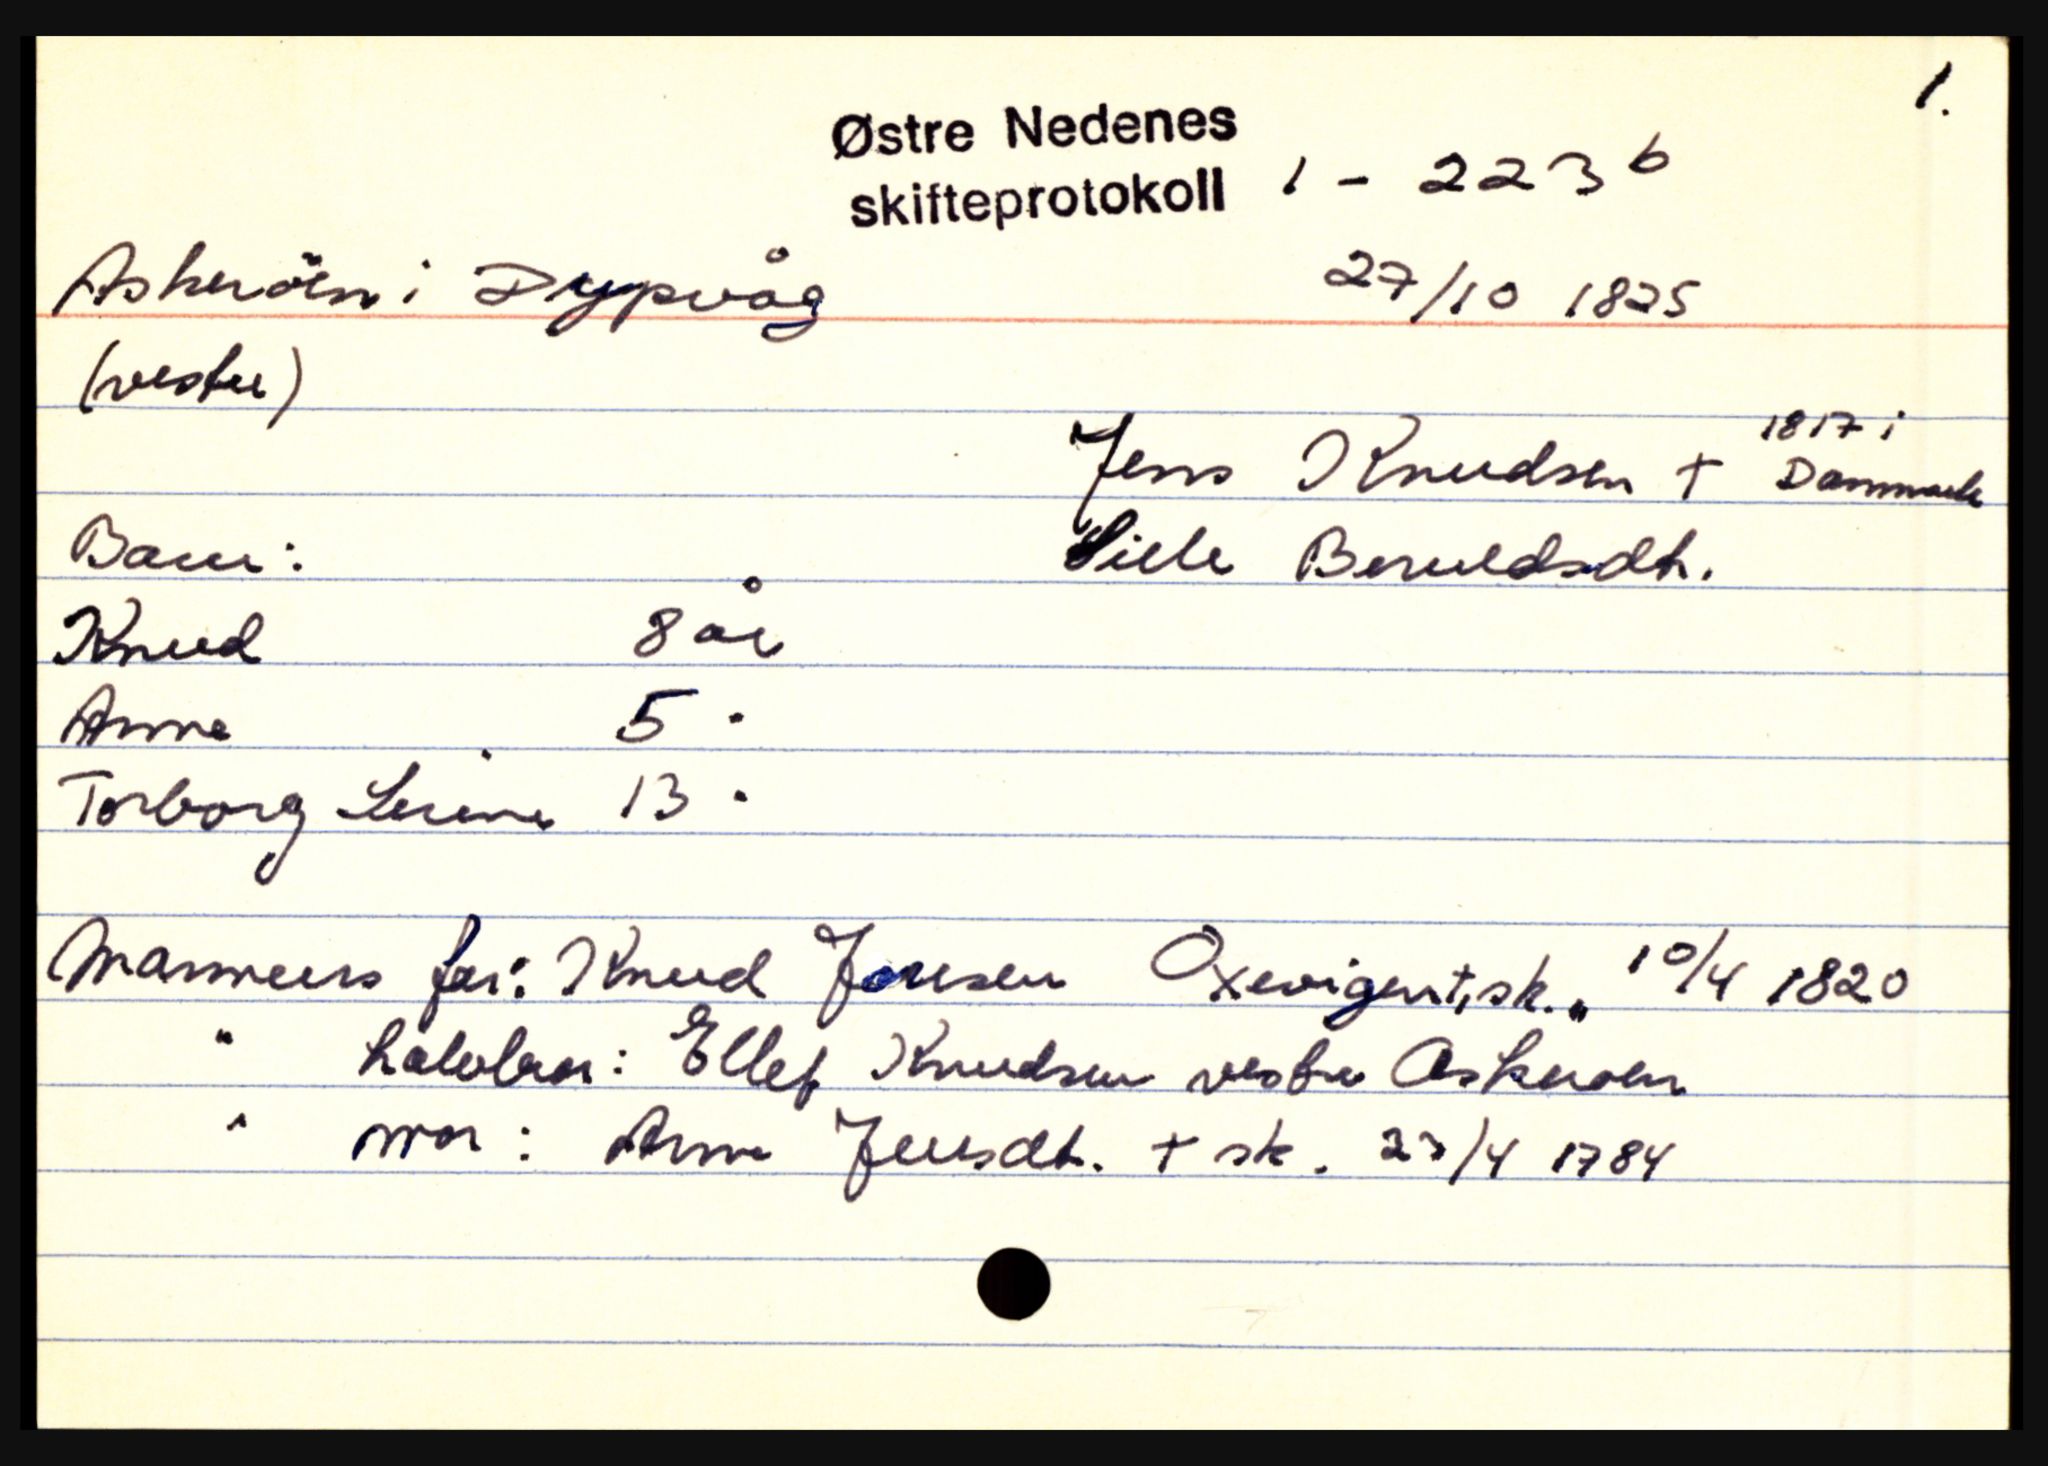 1.
Østre Nedenes
skifteprotokoll 1 - 223 b
Askerøen i Dypvåg 27/10 1825
(vestre)
Jens Knudsen † 1817 i Danmark
Barn: Sille Beruldsdt.
Knud 8 år
Anne 5 "
Torborg Serine 13 "
Mannens far: Knud Jensen Oxevigen †, sk. 10/4 1820
" halvbror: Ellef Knudsen vestre Askerøen
" mor: Anne Jensdt. † sk. 27/4 1784